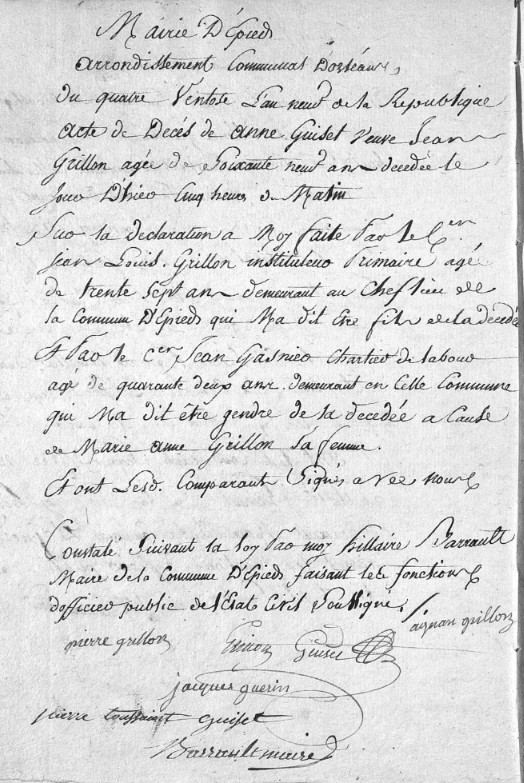 Mairie D'Epieds
arrondissement Communal D'orléans,
du quatre Ventose L'an neuf de la Republique
acte de Decés de anne Guiset veuve Jean
Grillon agée de Soixante neuf ans decedée le
jour D'hier Cinq heures du Matin
Sur la declaration a Moy faite Par le Cen
jean Louis Grillon instituteur Primaire agé
de trente Sept ans demeurant au Chef lieu de
la Commune D'Epieds qui M'a dit être fils de la decedée
Et Par le Cen Jean Gasnier Chartier de labour
agé de quarante deux ans demeurant en Celle Commune
qui M'a dit être gendre de la decedée a Cause
de Marie anne Grillon sa femme.
Et ont Lesd. Comparants Signés avec nous
Constaté Suivant la loy Par moy hillaire Barrault
Maire de la Commune D'Epieds faisant les fonctions
d'officier public de l'Etat Civil Soussigné,
aignan grillon
pierre grillon Guiset
jacques guerin
pierre toussaint guiset
Barrault maire